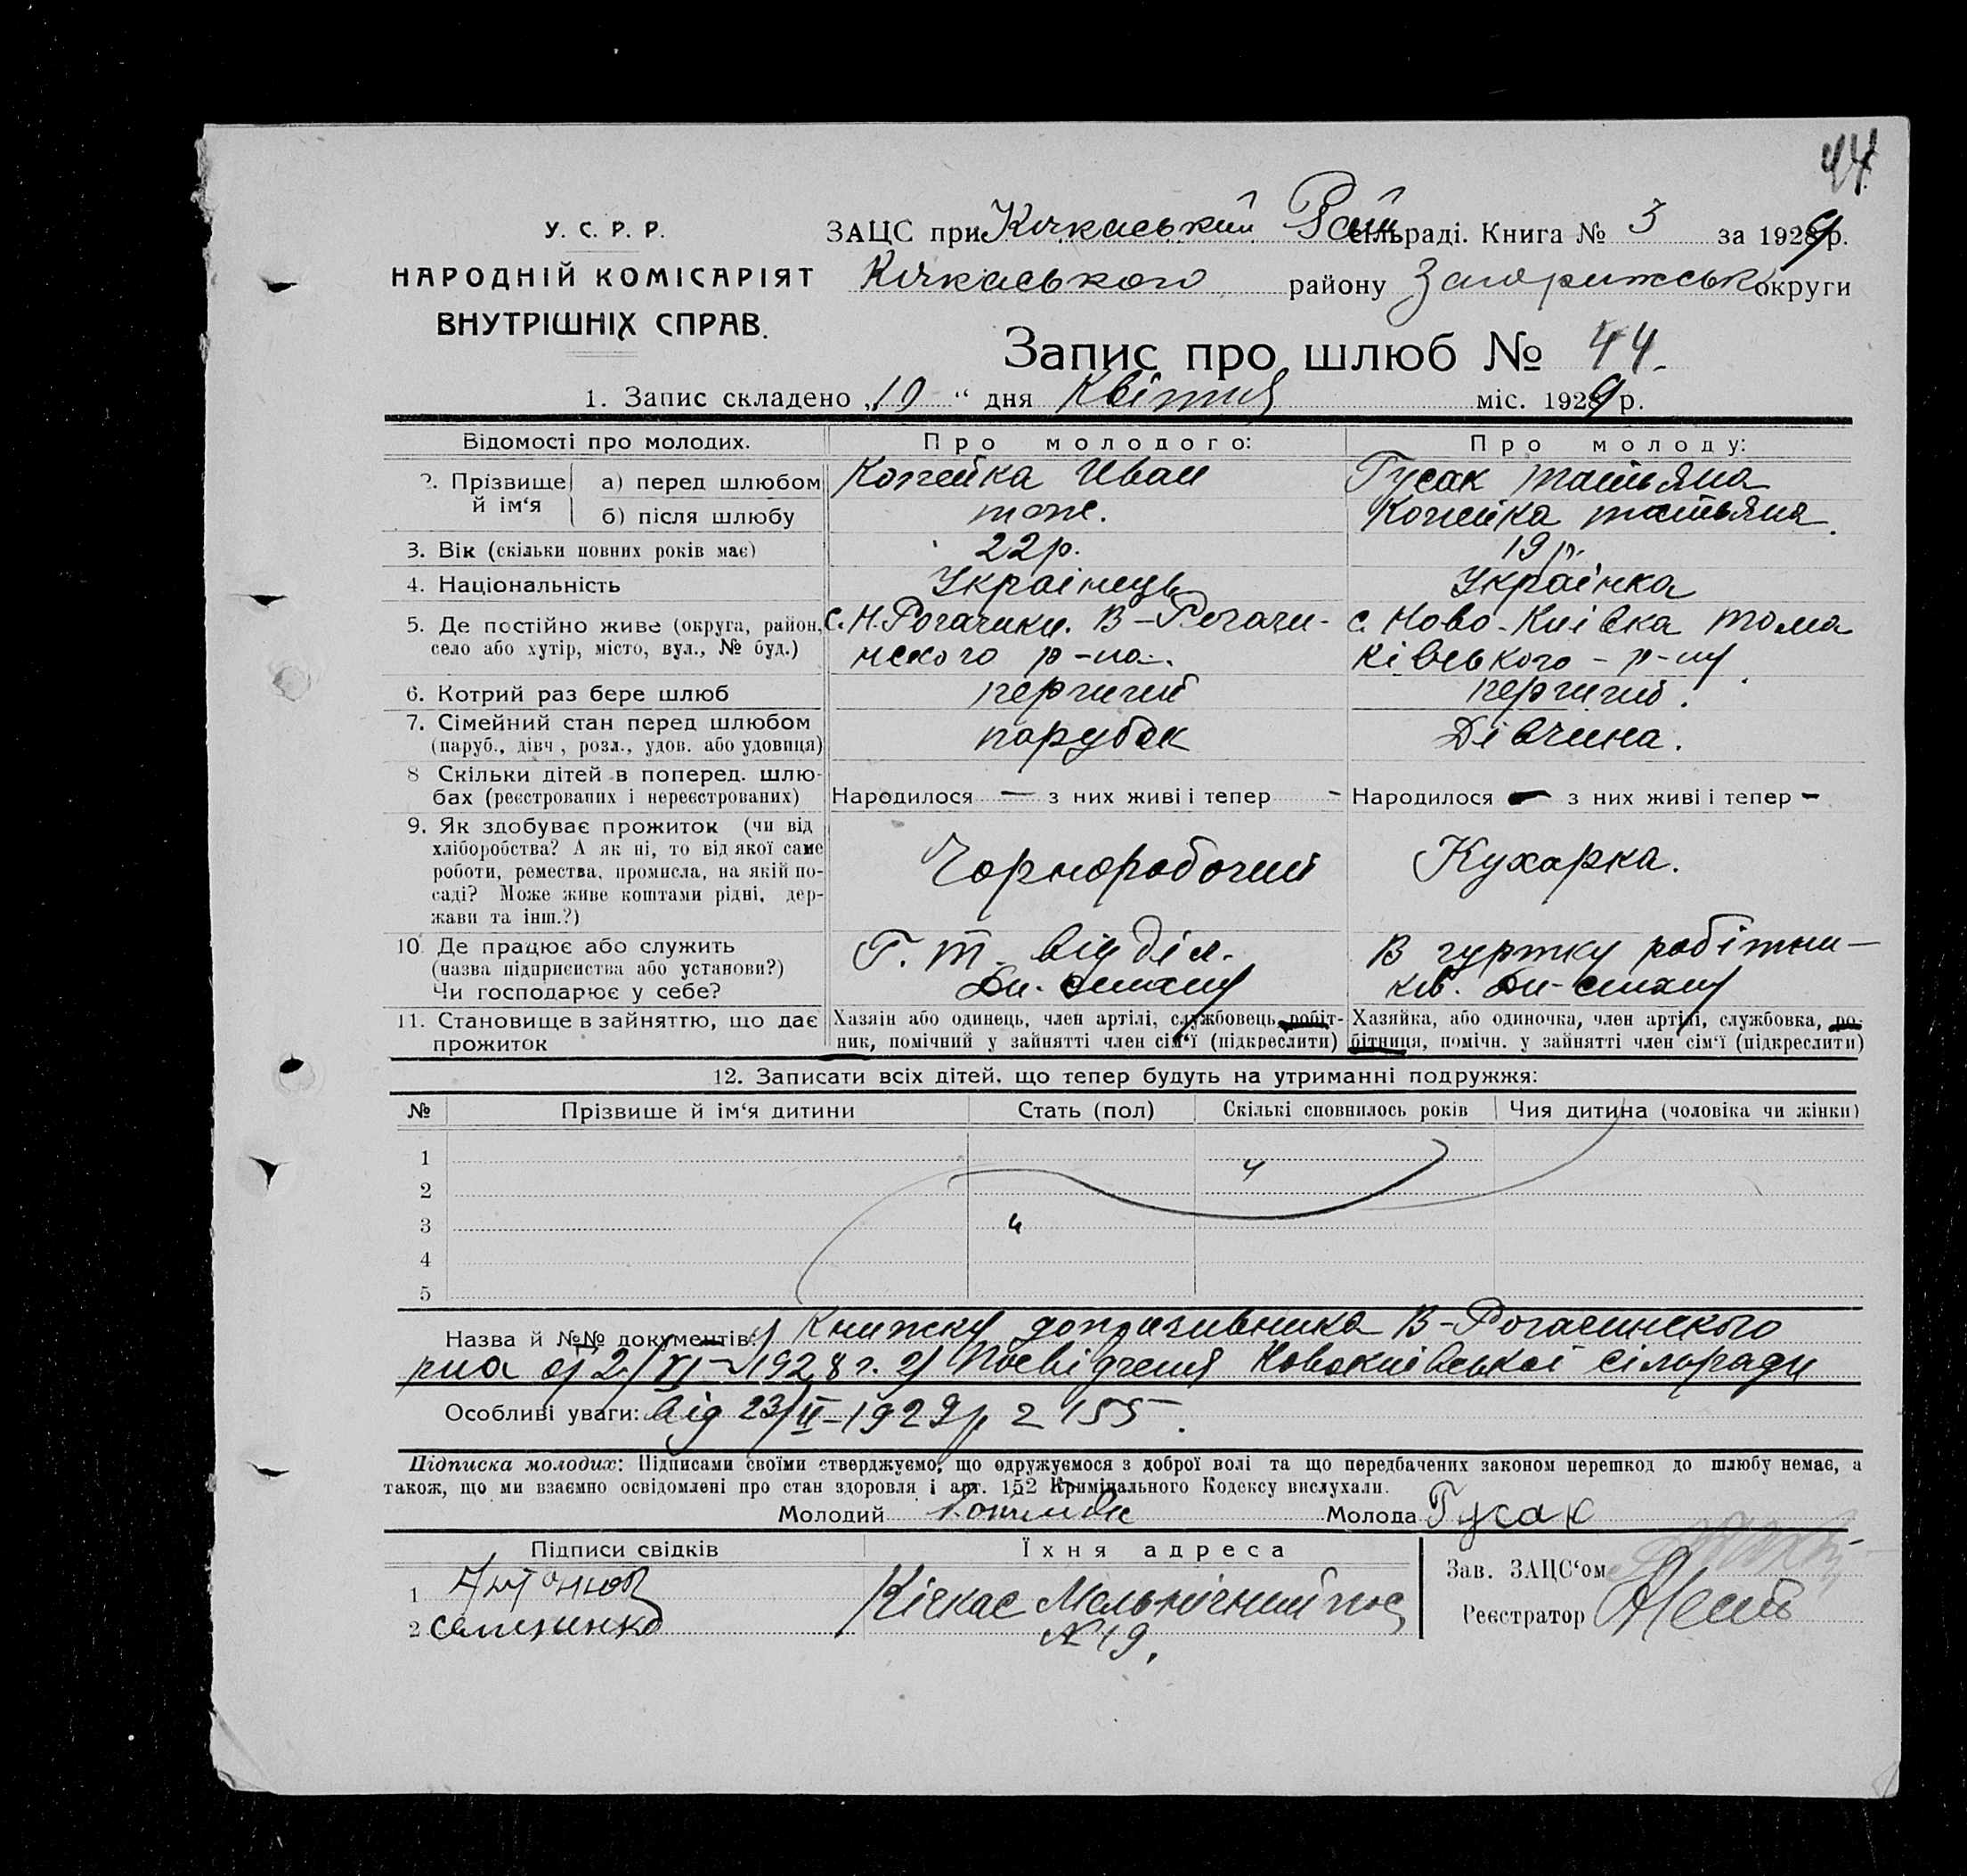 44
У. С. Р. Р.
НАРОДНІЙ КОМІСАРІЯТ
ВНУТРІШНІХ СПРАВ.
ЗАЦС при Кічкаський Рай сільраді. Книга № 3 за 1929 р.
Кічкаського району Запорижськ округи
Запис про шлюб № 44.
1. Запис складено „19“ дня Квітня міс. 1929 р.
Відомості про молодих. Про молодого: Про молоду:
2. Прізвище й ім‘я а) перед шлюбом Копейка Иван Гусак Татьяна
б) після шлюбу тоже. Копейка Татьяна.
3. Вік (скільки повних років має) 22 р. 19 р.
4. Національність Українець Українка
5. Де постійно живе (округа, район, с. Н. Рогачики. В-Рогачи- с. Ново-Київка Тома
село або хутір, місто, вул., № буд.) нского р-на. ківського-р-ну.
6. Котрий раз бере шлюб перший перший.
7. Сімейний стан перед шлюбом парубок Дівчина.
(паруб., дівч., розл., удов. або удовиця)
8 Скільки дітей в поперед. шлю-
бах (реєстрованих і нереєстрованих) Народилося — з них живі і тепер - Народилося — з них живі і тепер -
9. Як здобуває прожиток (чи від
хліборобства? А як ні, то від якої саме
роботи, ремества, промисла, на якій по- Чорноробочий Кухарка.
саді? Може живе коштами рідні, дер-
жави та інш.?)
10. Де працює або служить Г. т. відділ. В гуртку робітни-
(назва підприємства або установи?)
Чи господарює у себе? ків.
11. Становище в зайняттю, що дає Хазяїн або одинець, член артілі, службовець, робіт- Хазяйка, або одиночка, член артілі, службовка, ро-
прожиток ник, помічний у зайнятті член сім‘ї (підкреслити) бітниця, помічн. у зайнятті член сім‘ї (підкреслити)
12. Записати всіх дітей, що тепер будуть на утриманні подружжя:
№ Прізвише й ім‘я дитини Стать (пол) Скількі сповнилось років Чия дитина (чоловіка чи жінки)
1
2
3
4
5
Назва й №№ документів: 1) Книжку допризивника В-Рогачинского
рна від 2/XI-1928 г. 2) Посвідченя Новокиївської сільради
Особливі уваги: від 23/II-1929 р. 2155.
Підписка молодих: Підписами своїми стверджуємо, що одружуємося з доброї волі та що передбачених законом перешкод до шлюбу немає, а
також, що ми взаємно освідомлені про стан здоровля і арт. 152 Кримінального Кодексу вислухали.
Молодий Молода Гусак
Підписи свідків Їхня адреса Зав. ЗАЦС‘ом
1 Антонов Кічкас Мельнічний пос
2 Семененко № 19. Реєстратор